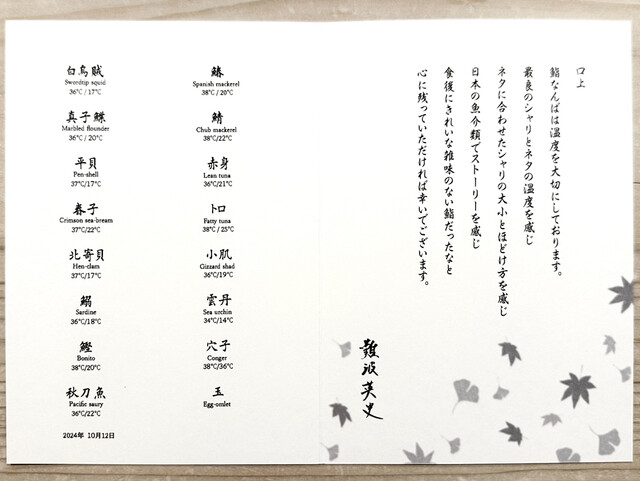 白烏賊
Swordtip squid
36°C / 17°C
真子鰈
Marbled flounder
36°C / 20°C
平貝
Pen-shell
37°C/17°C
春子
Crimson sea-bream
37°C/22°C
北寄貝
Hen-clam
37°C/17°C
鰯
Sardine
36°C/18°C
鰹
Bonito
38°C/20°C
秋刀魚
Pacific saury
36°C/22°C
鰆
Spanish mackerel
38°C / 20°C
鯖
Chub mackerel
38°C/22°C
赤身
Lean tuna
36°C/21°C
トロ
Fatty tuna
38°C / 25°C
小肌
Gizzard shad
36°C/19°C
雲丹
Sea urchin
34°C/14°C
穴子
Conger
38°C/36°C
玉
Egg-omlet
2024年 10月12日
口上
鮨なんばは温度を大切にしております。
最良のシャリとネタの温度を感じ
ネタに合わせたシャリの大小とほどけ方を感じ
日本の魚介類でストーリーを感じ
食後にきれいな雑味のない鮨だったなと
心に残っていただければ幸いでございます。
難波英史